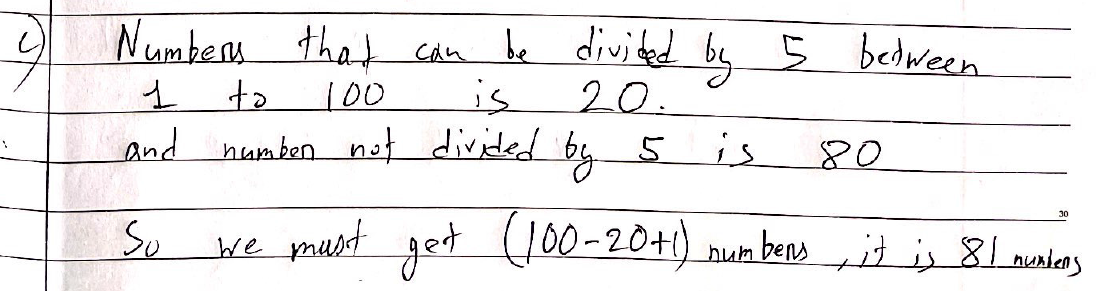 c) Numbers that can be divided by 5 between
1 to 100 is 20.
and number not divided by 5 is 80
30
So we must get (100-20+1) numbers, it is 81 numbers